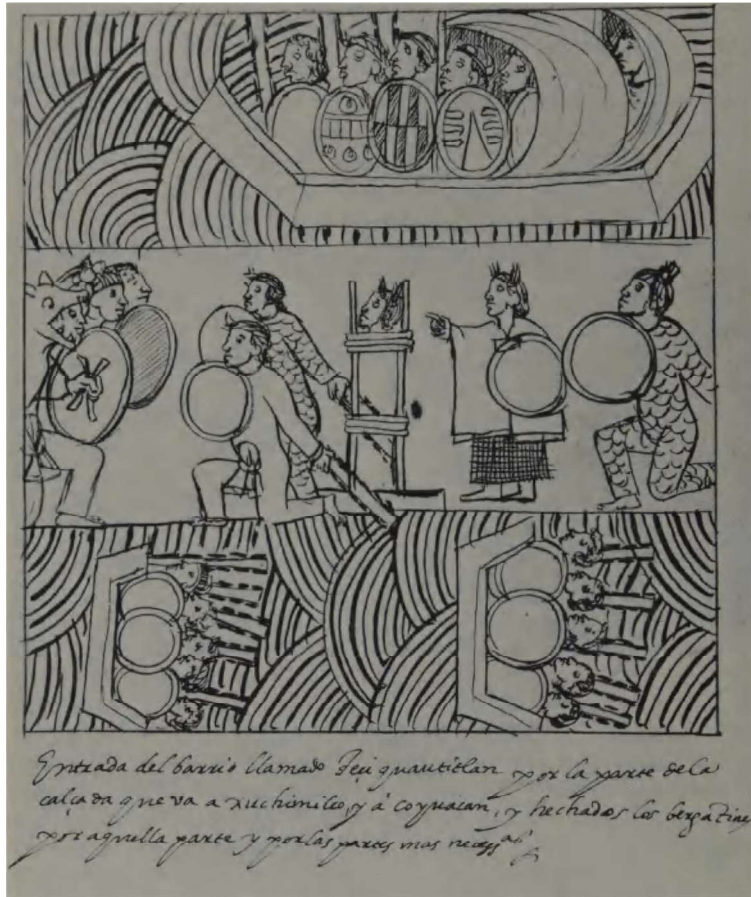 Entrada del barrio llamado Teçiquautitlan por la parte de la
calçada que va a xuchimilco, y á coyuacan, y hechados los bergatines
por aquella parte y por las partes mas